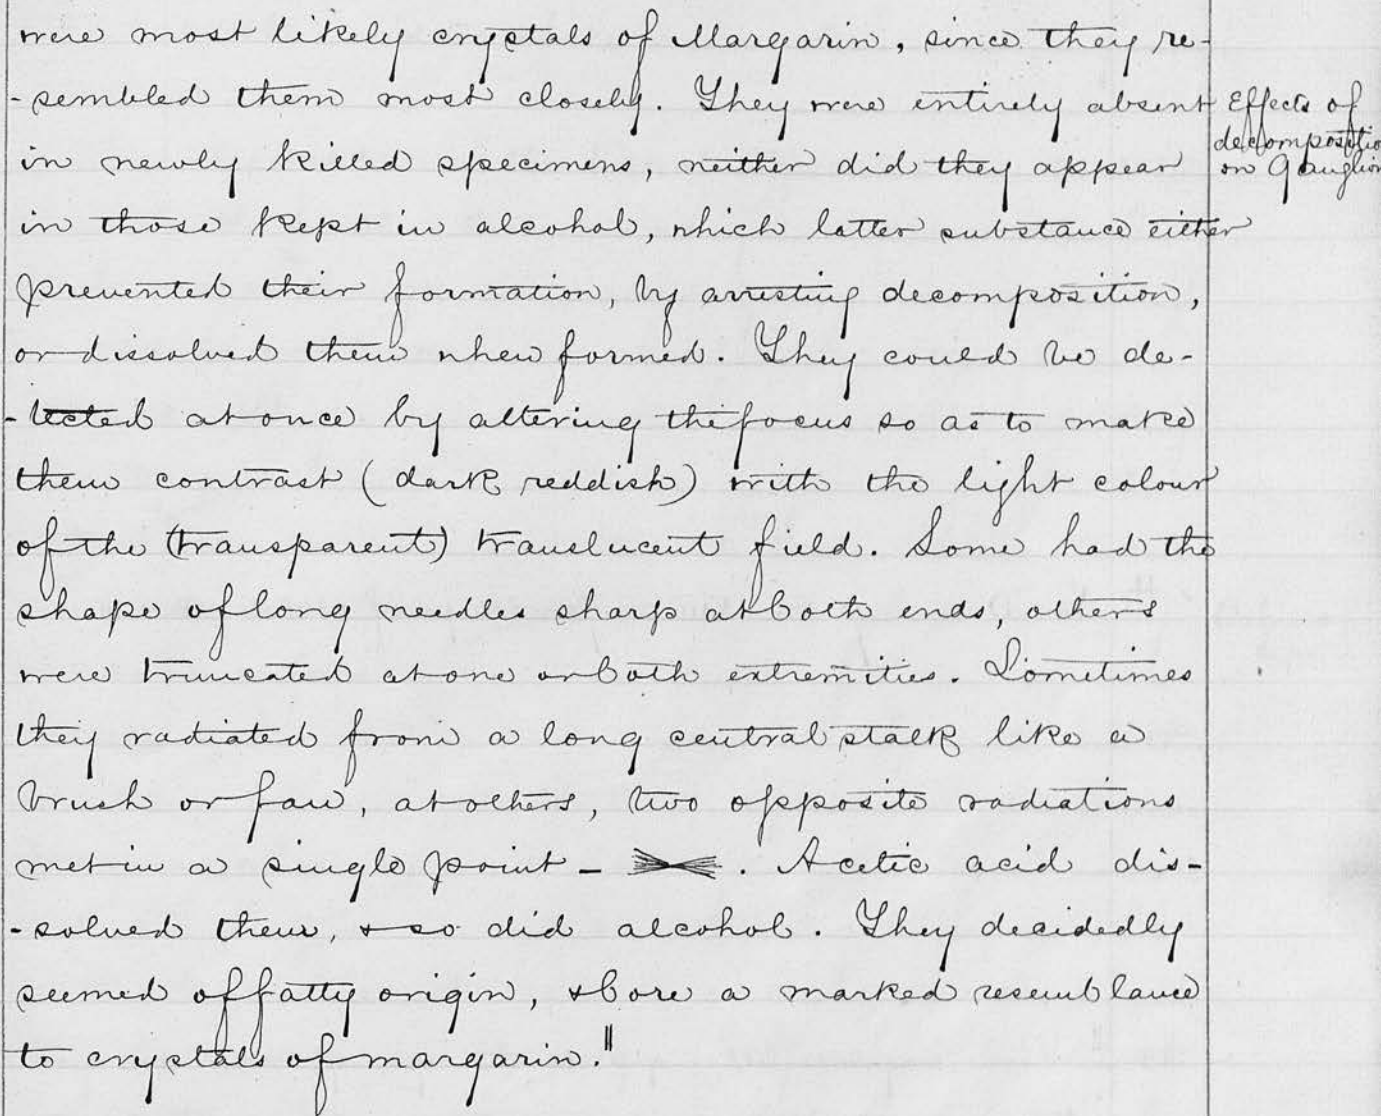 were most likely crystals of Margarin, since they re-
-sembled them most closely. They were entirely absent
in newly killed specimens, neither did they appear
in those kept in alcohol, which latter substance either
prevented their formation, by arresting decomposition,
or dissolved them when formed. They could be de-
-tected at once by altering the focus so as to make
them contrast (dark reddish) with the light colour
of the (transparent) translucent field. Some had the
shape of long needles sharp at both ends, others
were truncated at one or both extremities. Sometimes
they radiated from a long central stalk like a
brush or fan, at others, two opposite radiations
met in a single point - . Acetic acid dis-
-solved them, & so did alcohol. They decidedly
seemed of fatty origin, & bore a marked resemblance
to crystals of margarin."
Effects of
decompositio
on Ganglion